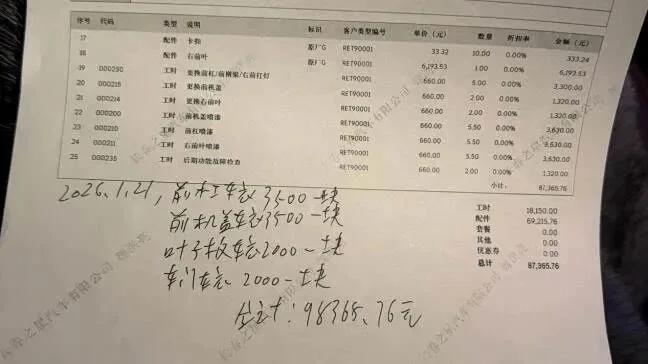 序号 代码 类型 说明 标识 客户类型编号 单价（元） 数量 折扣率 金额（元）
17 配件 卡扣 原厂G RET90001 33.32 10.00 0.00% 333.24
18 配件 右前叶 原厂G RET90001 6,193.53 1.00 0.00% 6,193.53
19 000230 工时 更换前杠/前横梁/右前灯 RET90001 660.00 5.00 0.00% 3,300.00
20 000215 工时 更换前机盖 RET90001 660.00 2.00 0.00% 1,320.00
21 000214 工时 更换右前叶 RET90001 660.00 2.00 0.00% 1,320.00
22 000200 工时 前机盖喷漆 RET90001 660.00 5.50 0.00% 3,630.00
23 000210 工时 前杠喷漆 RET90001 660.00 5.50 0.00% 3,630.00
24 000211 工时 右前叶喷漆 RET90001 660.00 5.50 0.00% 3,630.00
25 000235 工时 后期功能故障检查 RET90001 660.00 2.00 0.00% 1,320.00
小计： 87,365.76
工时 18,150.00
配件 69,215.76
套餐 0.00
其他 0.00
优惠券 0.00
总计 87,365.76
2026.1.21，前杠车衣3500一块
前机盖车衣3500一块
叶子板车衣2000一块
车门车衣 2000一块
合计：98365.76元
长春之星汽车有限公司